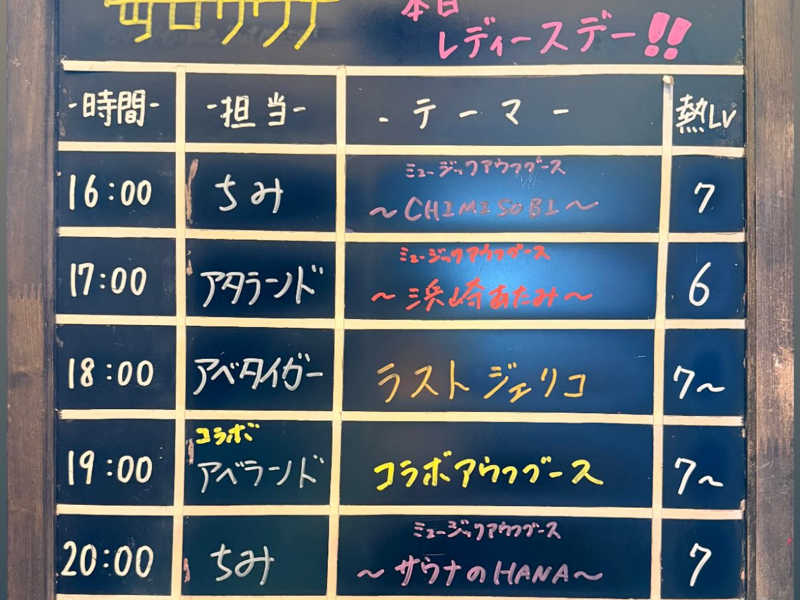 サロウリナ
本日
レディースデー!!
-時間-
-担当-
-テーマ-
熱LV
16:00
ちみ
ミュージックアウフグース
～CHIMISOBI～
7
17:00
アタランド
ミュージックアウフグース
～浜崎あたみ～
6
18:00
アベタイガー
ラストジェリコ
7～
19:00
コラボ
アベランド
コラボアウフグース
7～
20:00
ちみ
ミュージックアウフグース
～サウナのHANA～
7